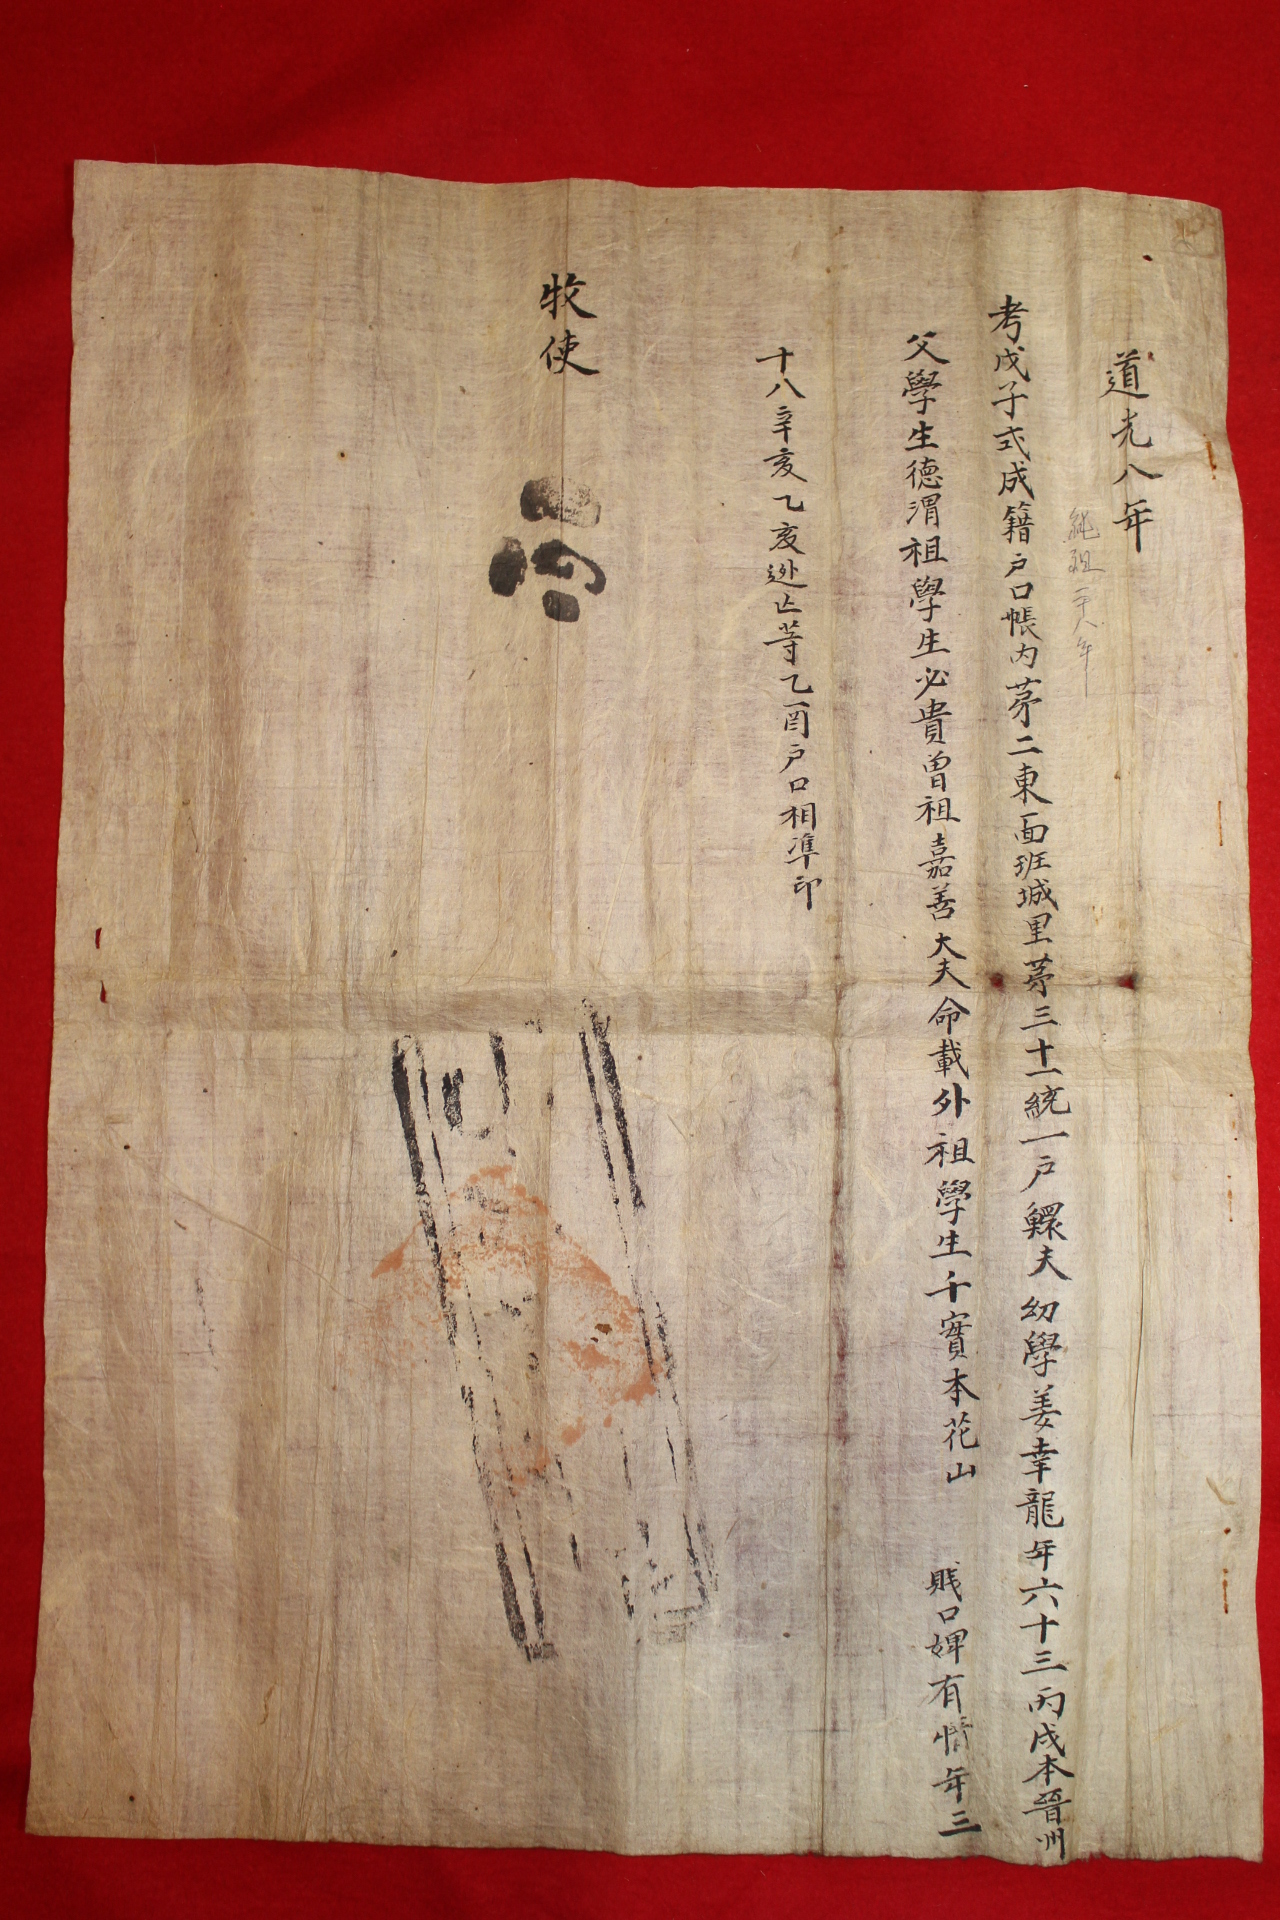 道光八年
純祖二十八年
考戊子式成籍戶口帳內苐二東面班城里苐三十一統一戶鰥夫幼學姜幸龍年六十三丙戌本晉州
父學生德渭祖學生必貴曾祖嘉善大夫命載外祖學生千實本花山 賎口婢有情年三
十八辛亥乙亥逃亡等乙酉戶口相凖印
牧使